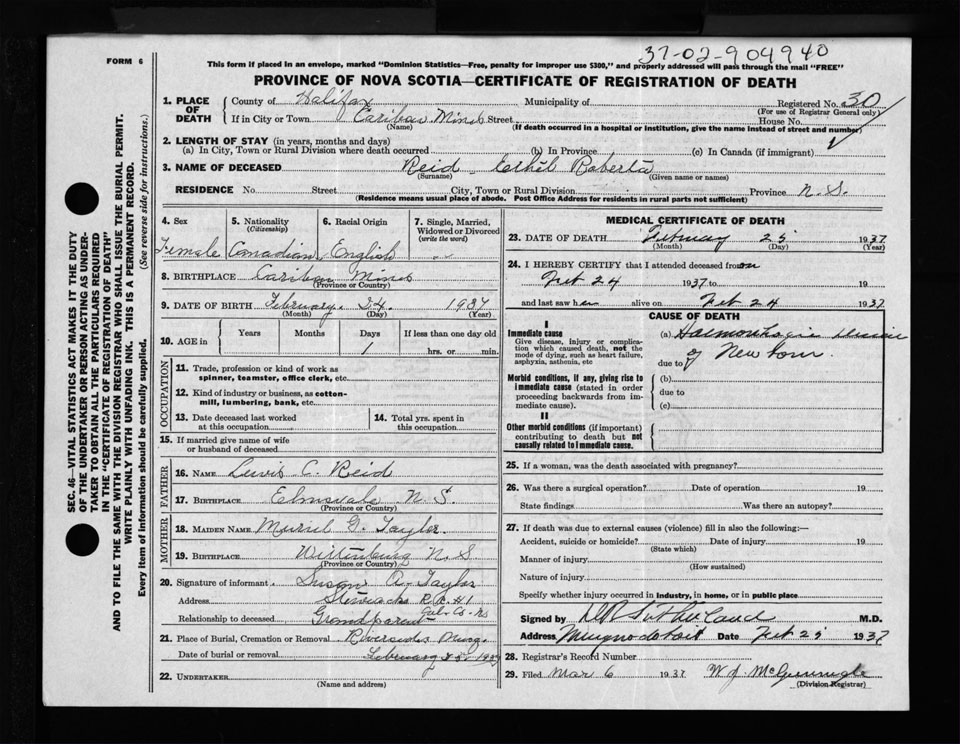 37-02-904940
FORM 6
This form if placed in an envelope, marked "Dominion Statistics—Free, penalty for improper use $300," and properly addressed will pass through the mail "FREE"
PROVINCE OF NOVA SCOTIA—CERTIFICATE OF REGISTRATION OF DEATH
1. PLACE OF DEATH County of Halifax Municipality of Registered No. 30
(For use of Registrar General only)
If in City or Town Caribou Mines Street House No.
(Name) (If death occurred in a hospital or institution, give the name instead of street and number)
2. LENGTH OF STAY (in years, months and days)
(a) In City, Town or Rural Division where death occurred (b) In Province (c) In Canada (if immigrant)
3. NAME OF DECEASED Reid Ethel Roberta
(Surname) (Given name or names)
RESIDENCE No. Street City, Town or Rural Division Province N.S.
(Residence means usual place of abode. Post Office Address for residents in rural parts not sufficient)
4. Sex 5. Nationality 6. Racial Origin 7. Single, Married,
(Citizenship) Widowed or Divorced
(write the word)
Female Canadian English
8. BIRTHPLACE Caribou Mines
(Province or Country)
9. DATE OF BIRTH February 24 1937
(Month) (Day) (Year)
10. AGE in Years Months Days If less than one day old
1 hrs. or min.
OCCUPATION
11. Trade, profession or kind of work as
spinner, teamster, office clerk, etc.
12. Kind of industry or business, as cotton-
mill, lumbering, bank, etc.
13. Date deceased last worked 14. Total yrs. spent in
at this occupation this occupation
15. If married give name of wife
or husband of deceased
FATHER
16. NAME Lewis C. Reid
17. BIRTHPLACE Elmsvale N.S.
(Province or Country)
MOTHER
18. MAIDEN NAME Muriel G. Taylor
19. BIRTHPLACE Wittenburg N.S
(Province or Country)
20. Signature of informant Susan A. Taylor
Address Stewiacke R.R.#1
Col. Co. NS
Relationship to deceased Grandparent
21. Place of Burial, Cremation or Removal Riverside
Date of burial or removal February 25 1937
22. UNDERTAKER
(Name and address)
MEDICAL CERTIFICATE OF DEATH
23. DATE OF DEATH February 25 1937
(Month) (Day) (Year)
24. I HEREBY CERTIFY that I attended deceased from on
Feb 24 1937 to 19
and last saw her alive on Feb 24 1937
CAUSE OF DEATH
I
Immediate cause (a) Haemorrhagic disease
Give disease, injury or complica-
tion which caused death, not the of New born
mode of dying, such as heart failure,
asphyxia, asthenia, etc due to
Morbid conditions, if any, giving rise to (b)
immediate cause (stated in order due to
proceeding backwards from im-
mediate cause). (c)
II
Other morbid conditions (if important)
contributing to death but not
causally related to immediate cause.
25. If a woman, was the death associated with pregnancy?
26. Was there a surgical operation? Date of operation 19
State findings Was there an autopsy?
27. If death was due to external causes (violence) fill in also the following:—
Accident, suicide or homicide? Date of injury 19
(State which)
Manner of injury
(How sustained)
Nature of injury
Specify whether injury occurred in industry, in home, or in public place
Signed by D R Sutherland M.D.
Address Musquodoboit Date Feb 25 1937
28. Registrar's Record Number
29. Filed Mar 6 1937 W J
(Division Registrar)
SEC. 46—VITAL STATISTICS ACT MAKES IT THE DUTY
OF THE UNDERTAKER OR PERSON ACTING AS UNDER-
TAKER TO OBTAIN ALL THE PARTICULARS REQUIRED
IN THE "CERTIFICATE OF REGISTRATION OF DEATH"
AND TO FILE THE SAME WITH THE DIVISION REGISTRAR WHO SHALL ISSUE THE BURIAL PERMIT.
WRITE PLAINLY WITH UNFADING INK. THIS IS A PERMANENT RECORD.
Every item of information should be carefully supplied. (See reverse side for instructions.)